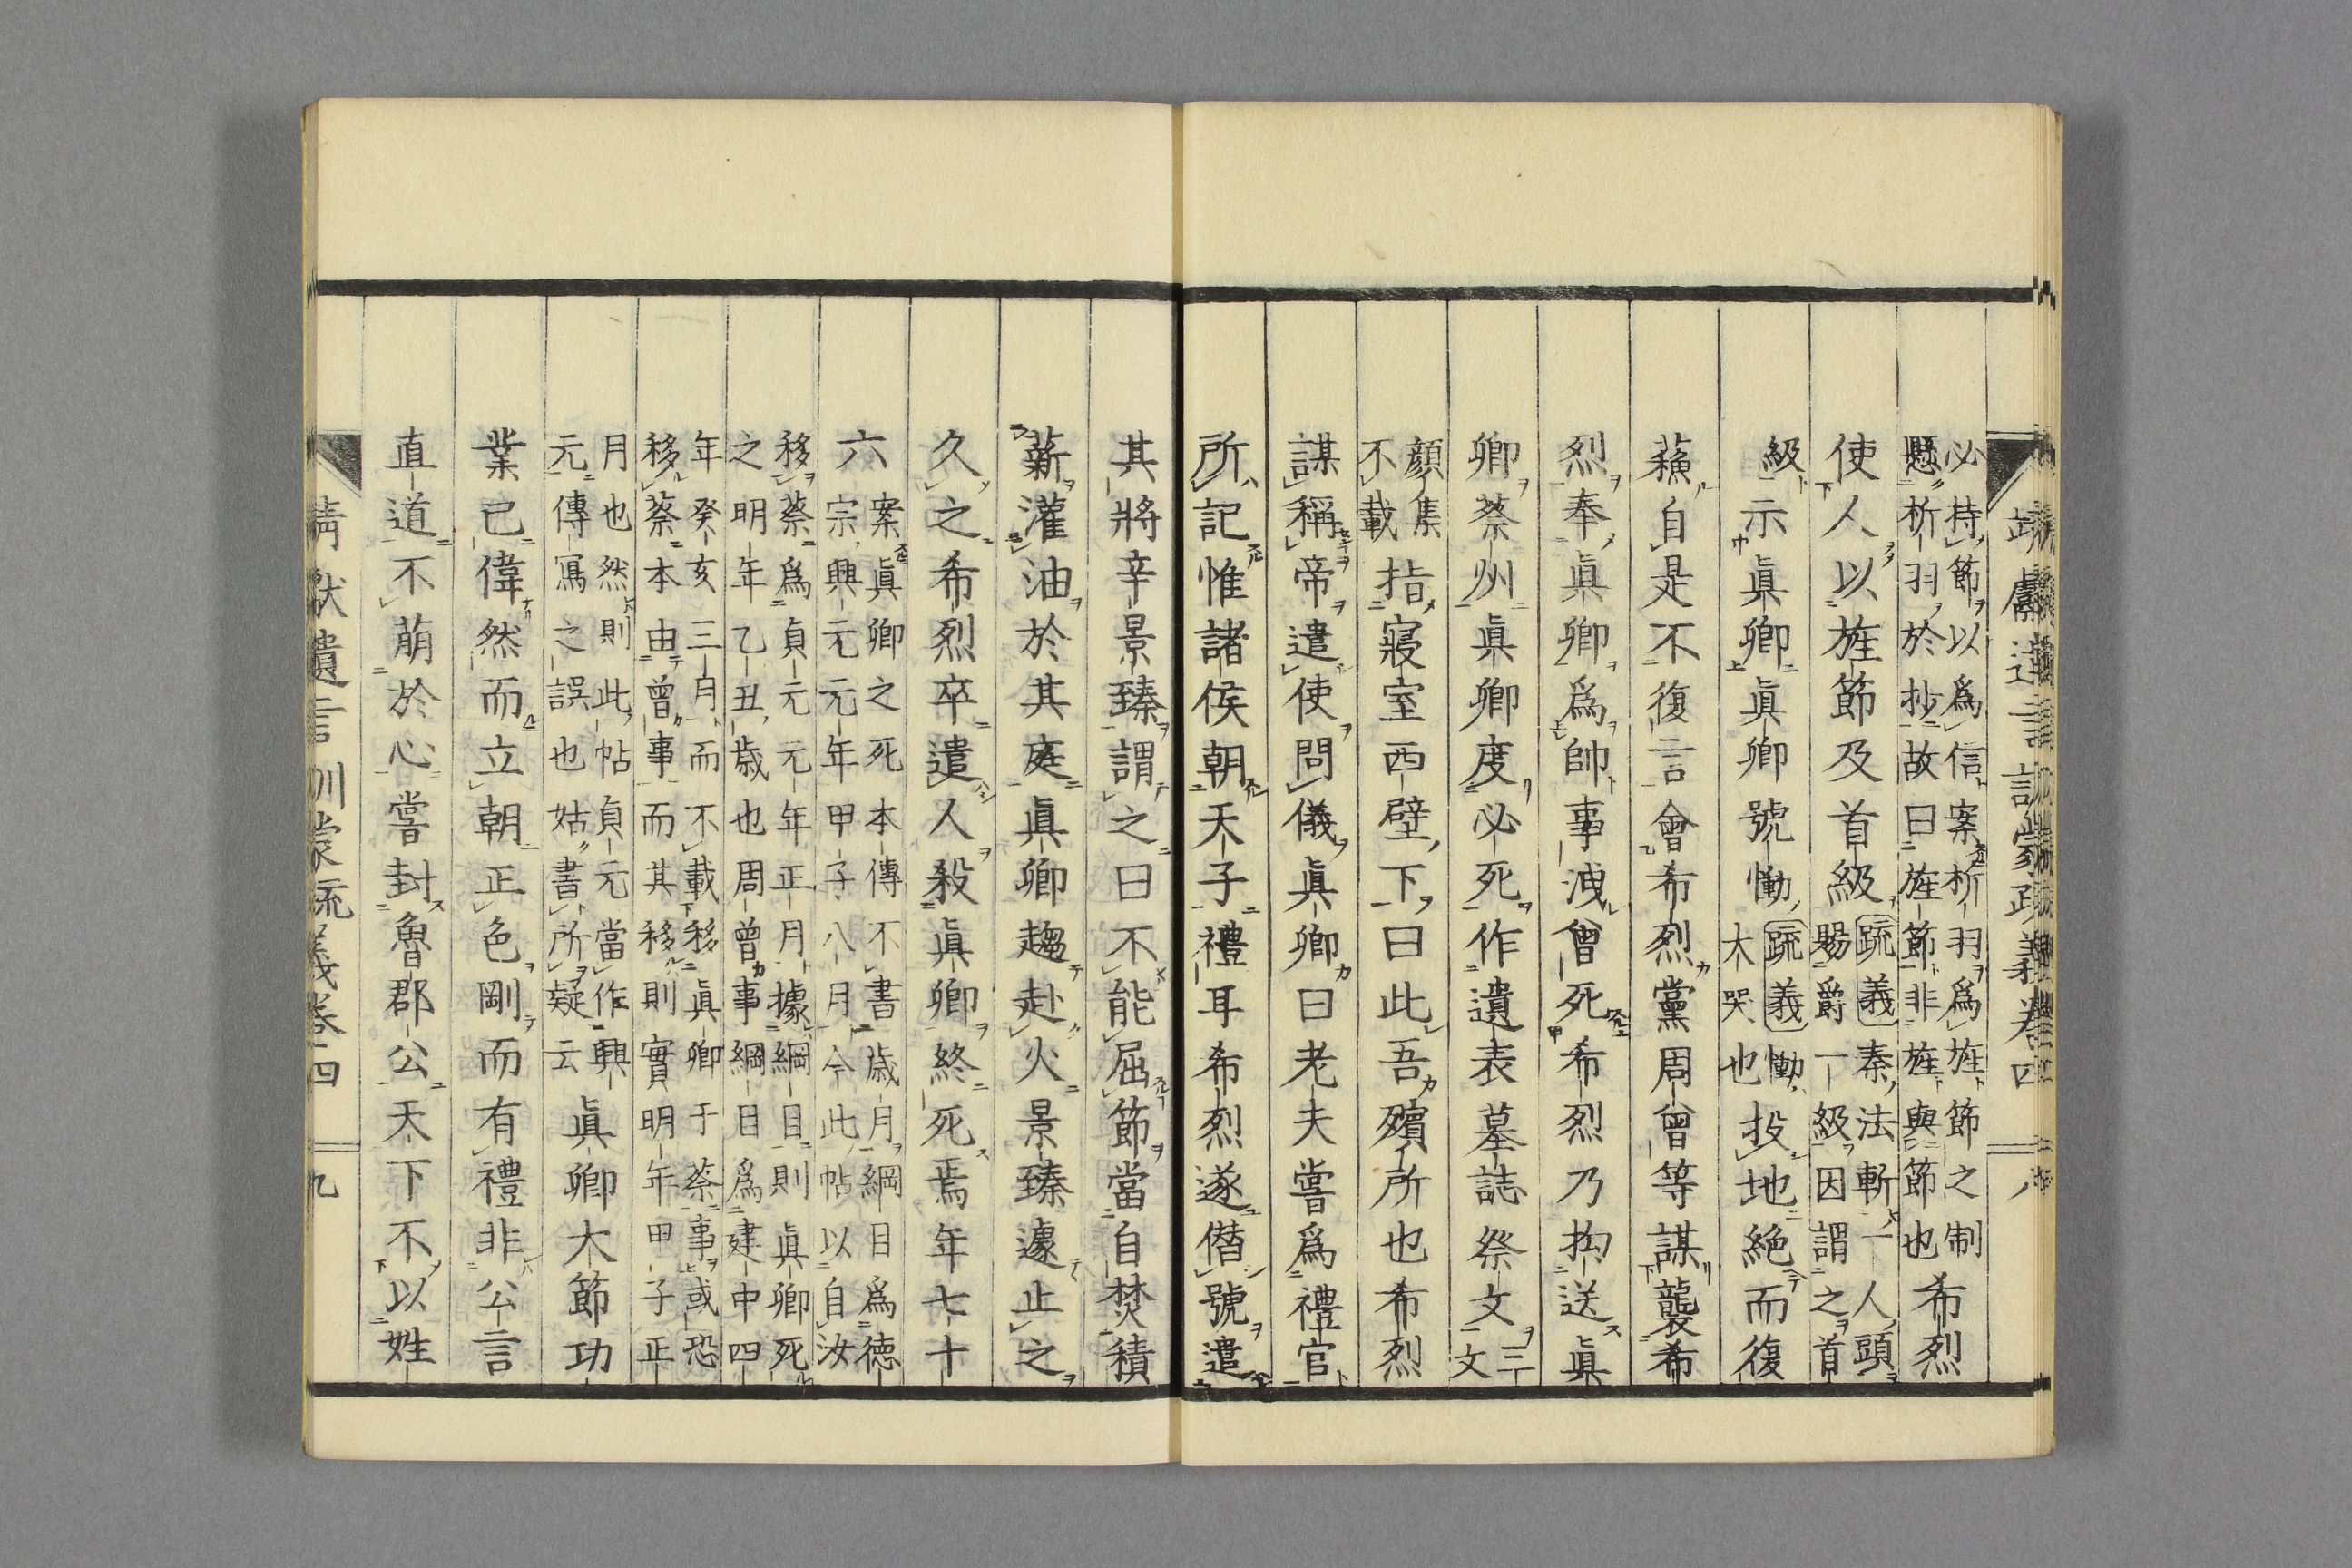 必持節以爲信案析羽爲旌節之制
懸析羽於抄故曰旌節非旌與節也希烈
使人以旌節及首級疏義秦法斬一人頭
賜爵一級因謂之首
級示眞卿眞卿號慟疏義慟
大哭也投地絶而復
蘓自是不復言會希烈黨周曾等謀襲希
烈奉眞卿爲帥事洩曾死希烈乃拘送眞
卿蔡州眞卿度必死作遺表墓誌祭文三
文
顔集
不載指寢室西壁下曰此吾殯所也希烈
謀稱帝遣使問儀眞卿曰老夫嘗爲禮官
所記惟諸侯朝天子禮耳希烈遂僣號遣
其將辛景臻謂之曰不能屈節當自焚積
薪灌油於其庭眞卿趨赴火景臻遽止之
久之希烈卒遣人殺眞卿終死焉年七十
六案眞卿之死本傳不書歳月綱目爲徳
宗興元元年甲子八月今此帖以自汝
移蔡爲貞元元年正月據綱目則眞卿死
之明年乙丑歳也周曾事綱目爲建中四
年癸亥三月而不載移眞卿于蔡事或恐
移蔡本由曾事而其移則實明年甲子正
月也然則此帖貞元當作興
元傳寫之誤也姑書所疑云眞卿大節功
業已偉然而立朝正色剛而有禮非公言
直道不萌於心嘗封魯郡公天下不以姓
靖獻遺言訓蒙疏義卷四
九